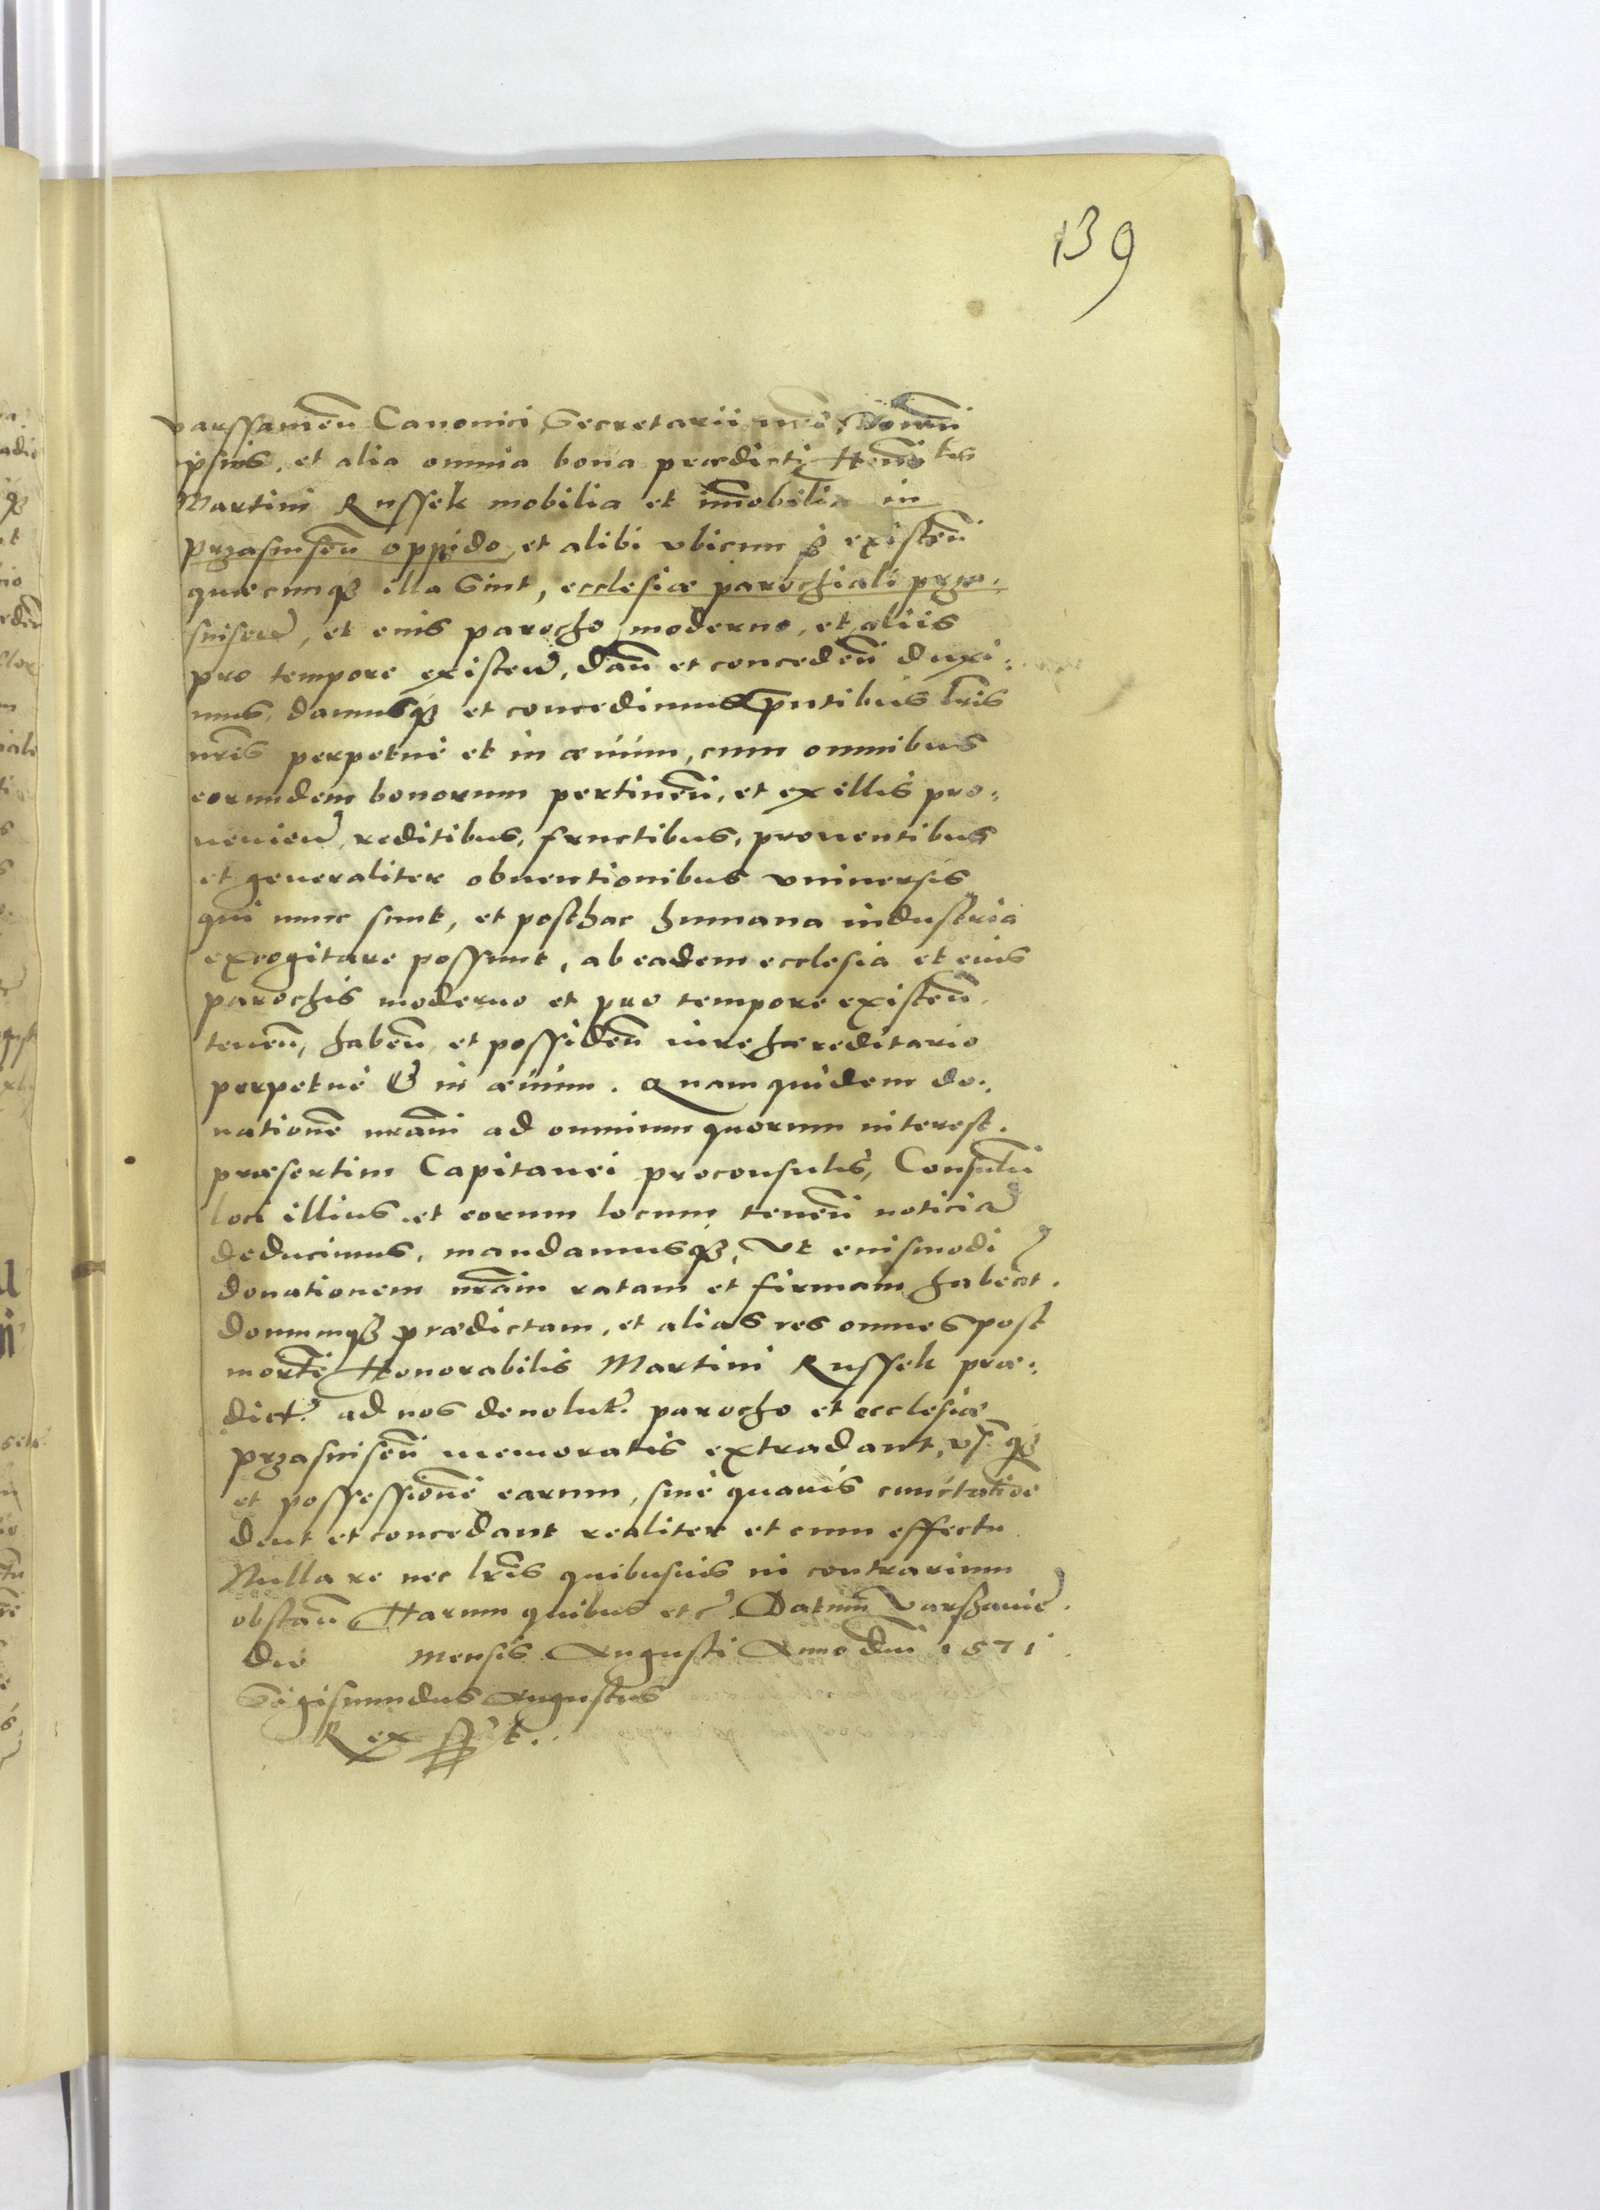 139
varssavień Canonici, Secretarii nři, Domum
ipsius, et alia omnia bona prædicti Honō:lis
Martini Russek mobilia et im̃obilia in
Przasnisen̄ oppido, et alibi vbicunq; existen̄
quæcunq; illa sint, ecclesiæ parochiali prza-
snisen̄, et eius parocho moderno, et aliis
pro tempore existen̄, dan̄ et conceden̄ duxi-
mus, damusq; et concedimus p̄ntibus l̄ris
n̄ris perpetuè et in æuum, cum omnibus
eorundem bonorum pertinen̄, et ex illis pro-
uenien̄, reditibus, fructibus, prouentibus
et generaliter obuentionibus vniuersis
qui nunc sunt, et posthac humana industria
excogitare possunt, ab eadem ecclesia et eius
parochis moderno et pro tempore existen̄
tenen̄, haben̄ et possiden̄ iure hæreditario
perpetuè & in æuum. Quam quidem do-
nationē n̄ram ad omnium quorum interest.
præsertim Capitanei proconsulis, Consulū
loci illius et eorum locum tenen̄ noticiā
deducimus, mandamusq;, Vt eiusmodi
donationem n̄ram ratam et firmam habeāt.
domumq; prædictam, et alias res omnes post
mortē Honorabilis Martini Russek præ-
dict. ad nos deuolut. parocho et ecclesiæ
przasnisen̄ memoratis extradant,
et possessionē earum, sine quauis cunctatiōe
dent et concedant realiter et cum effectu
Nulla re nec l̄ris quibusuis in contrarium
obstan̄ Harum quibus etc. Datum̄ Varsȝauiē.
die mensis Augusti Anno dn̄i 1571.
Sigismundus Augustus
Rex sst.